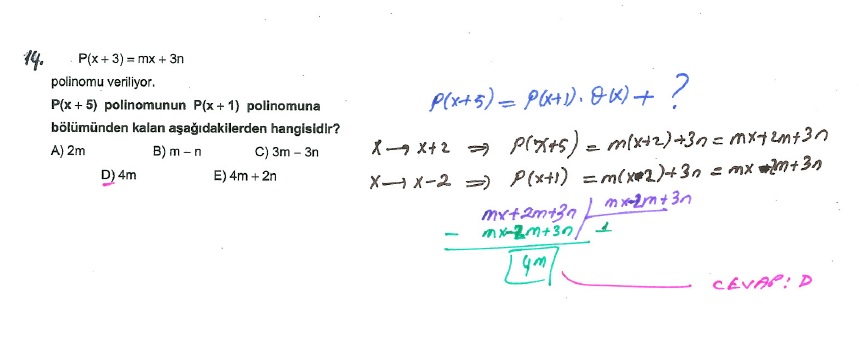 14. P(x + 3) = mx + 3n
polinomu veriliyor.
P(x + 5) polinomunun P(x + 1) polinomuna
bölümünden kalan aşağıdakilerden hangisidir?
A) 2m B) m – n C) 3m – 3n
D) 4m E) 4m + 2n
P(x+5) = P(x+1). θ(x) + ?
x → x+2 ⇒ P(x+5) = m(x+2)+3n = mx+2m+3n
x → x-2 ⇒ P(x+1) = m(x-2)+3n = mx-2m+3n
mx+2m+3n | mx-2m+3n
– mx-2m+3n 1
4m
CEVAP: D